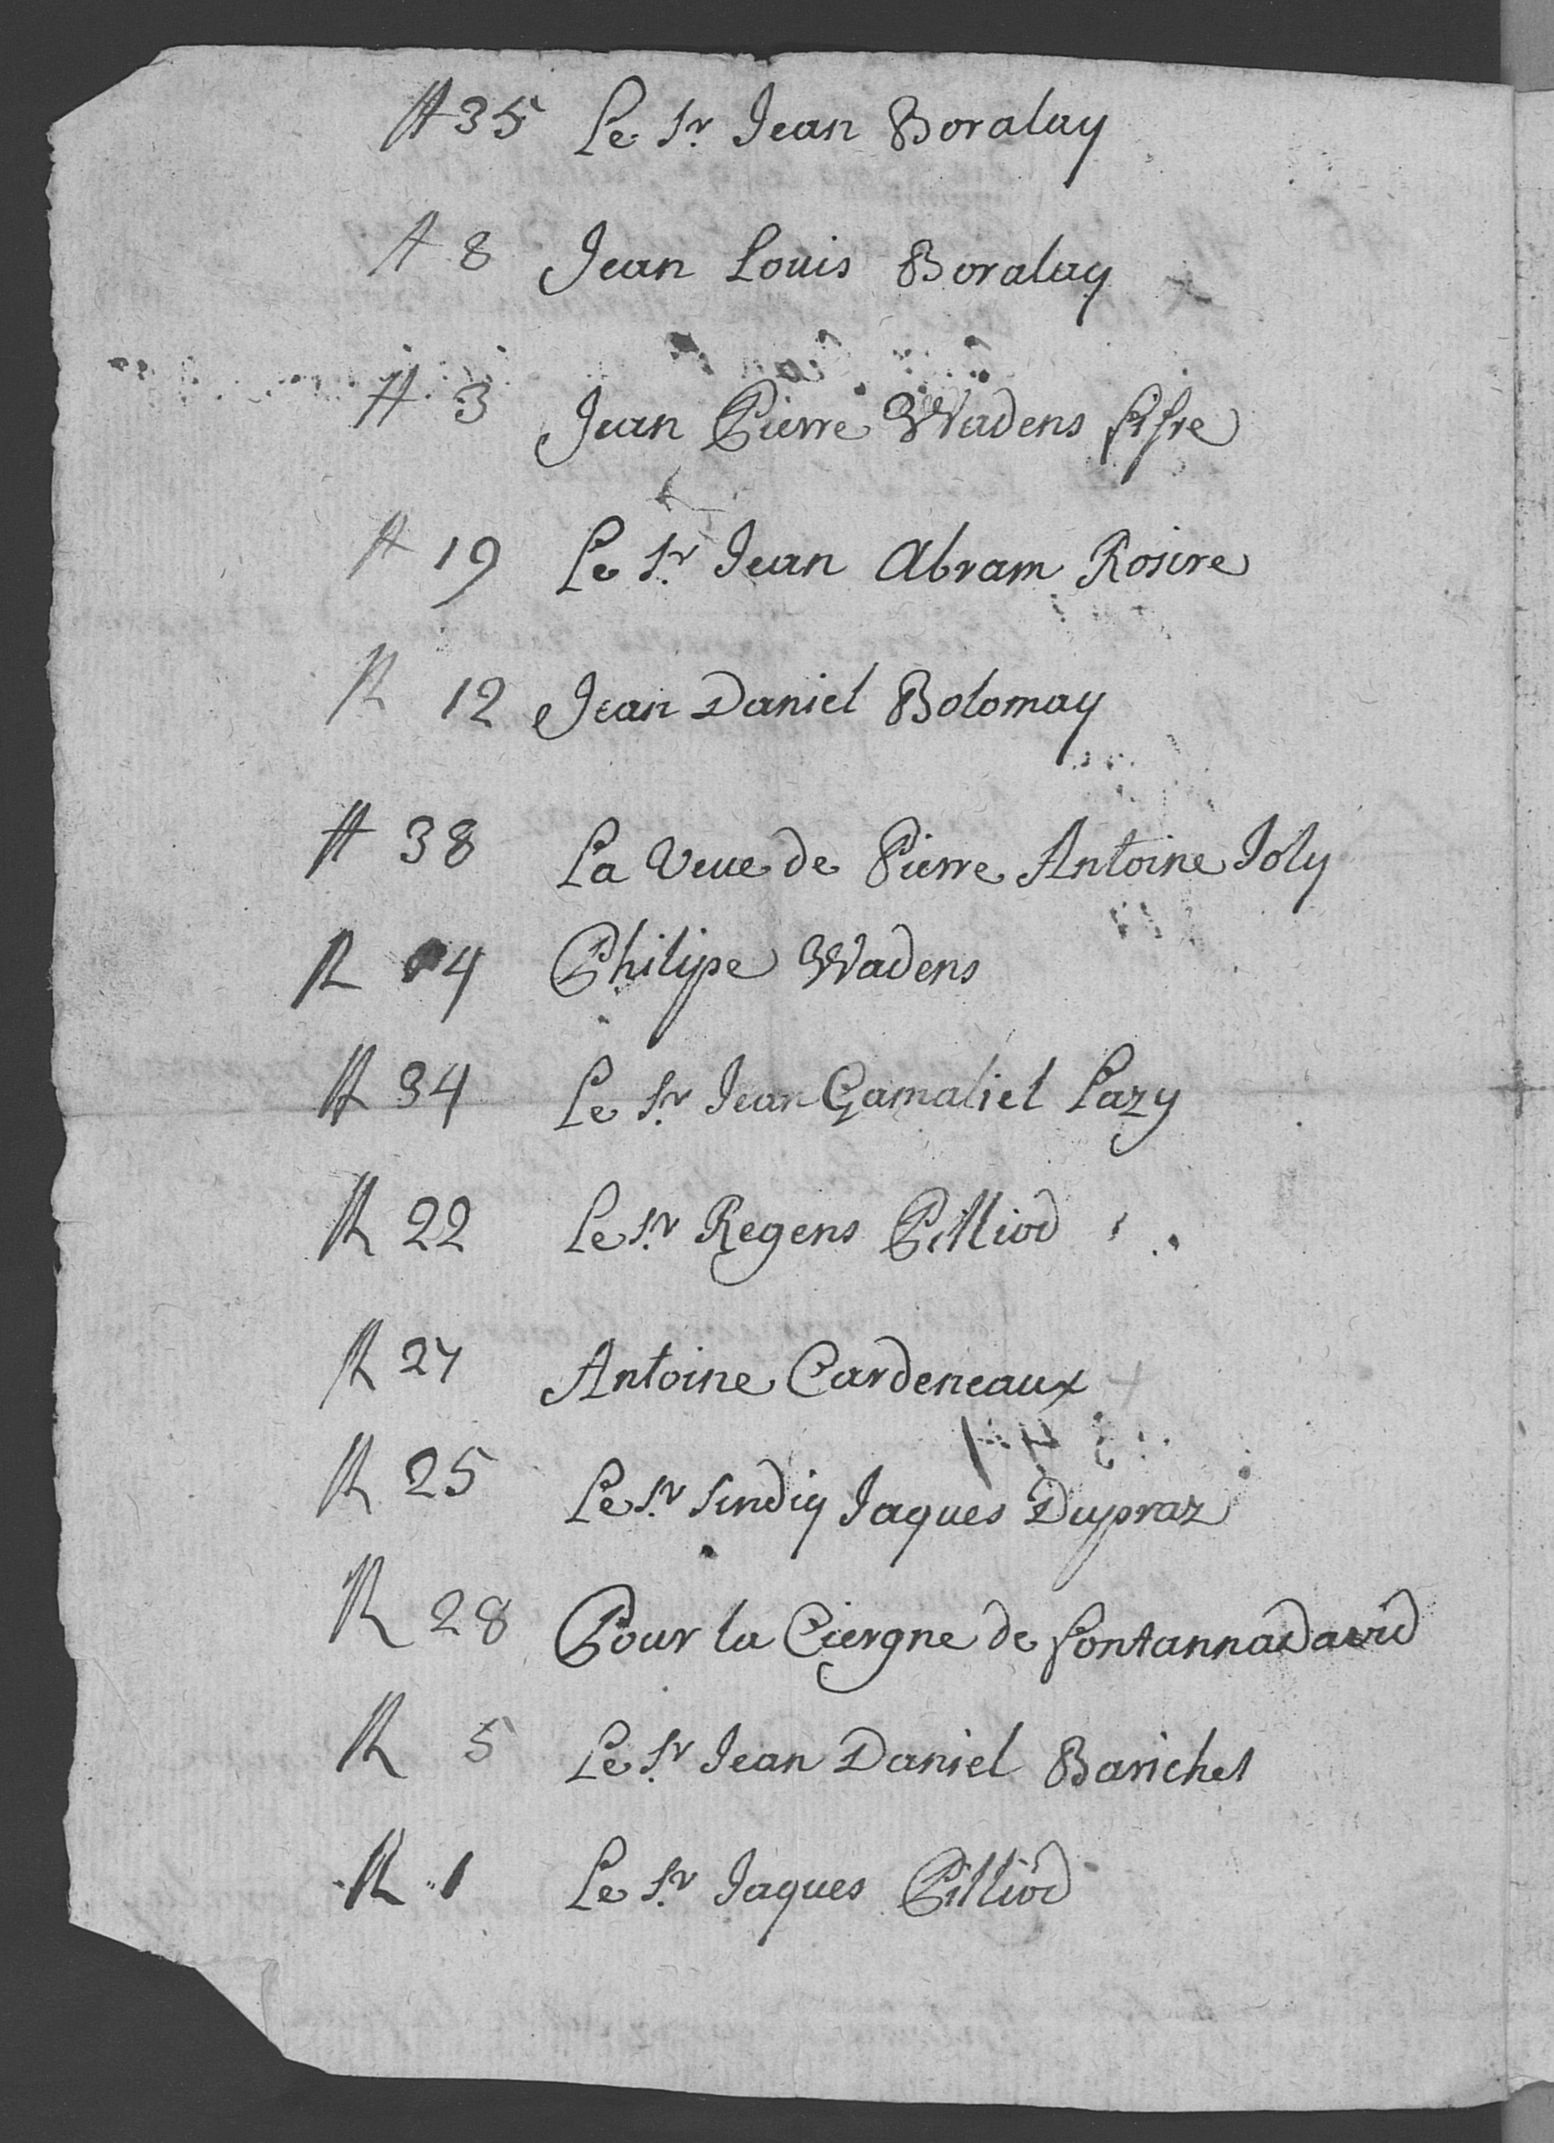 # 35 Le Sr. Jean Boralay
# 8 Jean Louis Boralay
# 3 Jean Pierre Wadens fifre
# 19 Le Sr. Jean Abram Rosire
# 12 Jean Daniel Bolomay
# 38 La Veue de Pierre Antoine Joly
# 4 Philipe Wadens
# 34 Le Sr. Jean Gamaliel Lazy
# 22 Le Sr. Regens Pilliod
# 27 Antoine Cardeneaux
# 25 Le Sr. Sindiq Jaques Dupraz
# 28 Pour la Ciergne de fontanna David
# 5 Le Sr. Jean Daniel Barichet
# 1 Le Sr. Jaques Pilliod